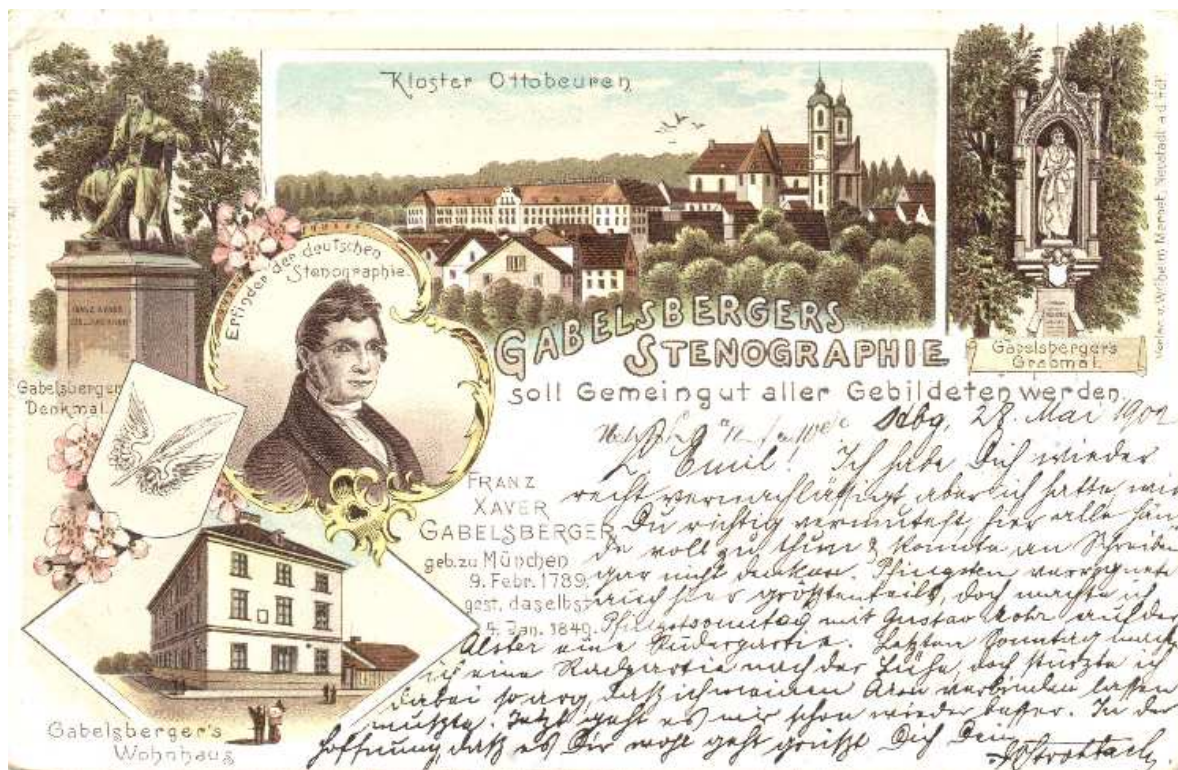 Kloster Ottobeuren
Erfinder der deutschen
Stenographie.
GABELSBERGERS
STENOGRAPHIE
soll Gemeingut aller Gebildeten werden.
Gabelsberger
Denkmal.
Gabelsberger's
Grabmal.
FRANZ
XAVER
GABELSBERGER
geb. zu München
9. Febr. 1789,
gest. daselbst
4. Jan. 1849.
Gabelsberger's
Wohnhaus
Hbg, 28. Mai 1902
L. Emil! Ich habe Dich wieder
recht vernachlässigt, aber ich hatte wie
Du richtig vermutest, hier alle Hän-
de voll zu thun & konnte an Schreiben
gar nicht denken. Pfingsten verregnete
auch hier größtenteils, doch machte ich
Pfingstsonntag mit Gustav auf der
Alster eine Ruderpartie. Letzten Sonntag machte
ich eine Radpartie nach der Lühe, doch stürzte ich
dabei so arg, daß ich meinen Arm verbinden lassen
mußte. Jetzt geht es mir schon wieder besser. In der
Hoffnung, daß es Dir wohl geht grüßt Dich Dein